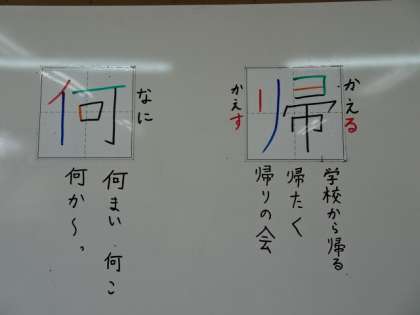 かえる
帰
かえす
学校から帰る
帰たく
帰りの会
なに
何
何まい 何こ
何か〜。